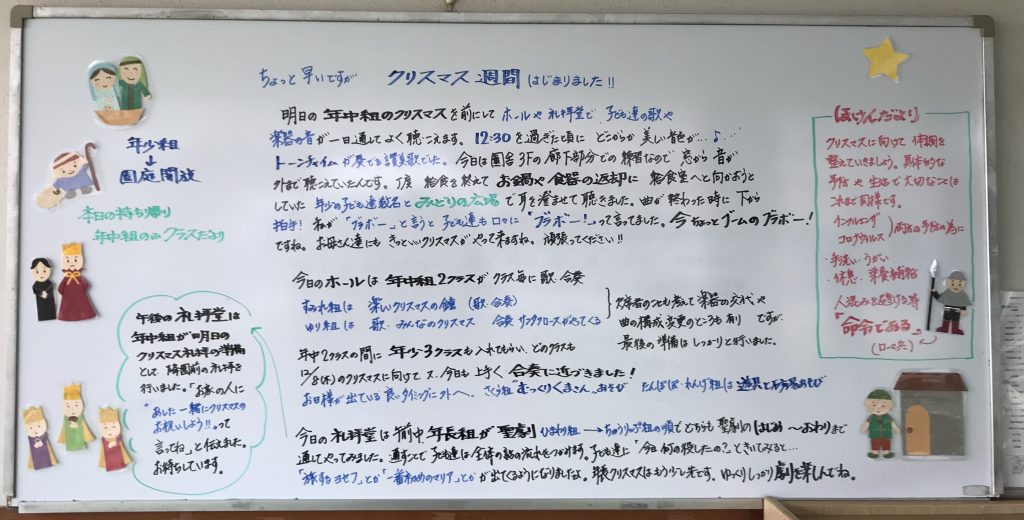 ちょっと早いですが クリスマス週間 はじまりました!!
明日の 年中組のクリスマスを前にして ホールや礼拝堂で 子ども達の歌や
楽器の音が一日通してよく聴こえます。12:30を過ぎた頃に どこからか 美しい音色が…♪…
トーンチャイムが奏でる讃美歌でした。今日は園舎3Fの廊下部分での練習なので 窓から音が
外まで聴こえていたんです。丁度 給食を終えて お鍋や食器の返却に 給食室へと向かおうと
していた 年少の子ども達数名と みどりの広場で耳を澄ませて聴きました。曲が終わった時に下から
拍手! 私が「ブラボー」と言うと子ども達も口々に「ブラボー!」って言ってました。今ちょっとブームのブラボー!
ですね。お母さん達にも きっと…クリスマスがやって来ますね。頑張ってください!!
今日のホールは 年中組2クラスが クラス毎に 歌・合奏
すみれ組は 楽しいクリスマスの鐘 (歌・合奏)
ゆり組は 歌・みんなのクリスマス 合奏 サンタクロースがやってくる
欠席者のことも考えて楽器の交代や
曲の構成変更のところも有り ですが
最後の準備はしっかりと行いました。
年中2クラスの間に 年少3クラスも入れてもらい、どのクラスも
12/8(木)のクリスマスに向けて 又、今日も上手く 合奏に近づきました!
お日様が出ている 良いタイミングに外へ、さくら組 むっくりくまさん…あそび たんぽぽ・れんげ組は 遊具と砂場あそび
今日の礼拝堂は 午前中 年長組が 聖劇 ひまわり組 → ちゅうりっぷ組の順で どちらも 聖劇の はじめ〜おわりまで
通してやってみました。通すことで 子ども達は全体の話の流れをつかめます。子ども達に「今日 何の役したの?」ときいてみると…
「旅するヨセフ」とか「一番初めのマリア」とかが出てくるようになりましたよ。クリスマスはもうすぐ来ます。ゆっくりしっかり 劇を楽しんでね。
年少組
↓
園庭開放
本日の持ち帰り
年中組のみ クラスだより
午後の礼拝堂は
年中組が明日の
クリスマス礼拝の準備
として 降園前の礼拝を
行いました。「お家の人に
"あした一緒にクリスマスの
お祝いしよう!!"って
言ってね」と伝えました。
お待ちしています。
ほけんだより
クリスマスに向けて 体調を
整えていきましょう。具体的な
予防や生活で大切なことは
これまで同様です。
インフルエンザ
コロナウィルス
両方の予防の為に
・手洗い・うがい
・休息・栄養補給
人混みを避ける等
「命令である」
(ローマ兵)